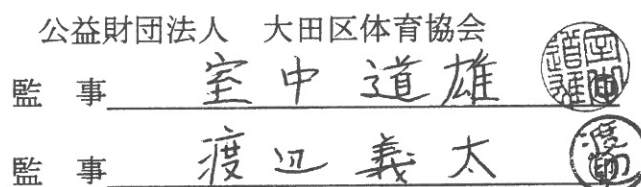 公益財団法人 大田区体育協会
監 事 室中道雄
監 事 渡辺義太